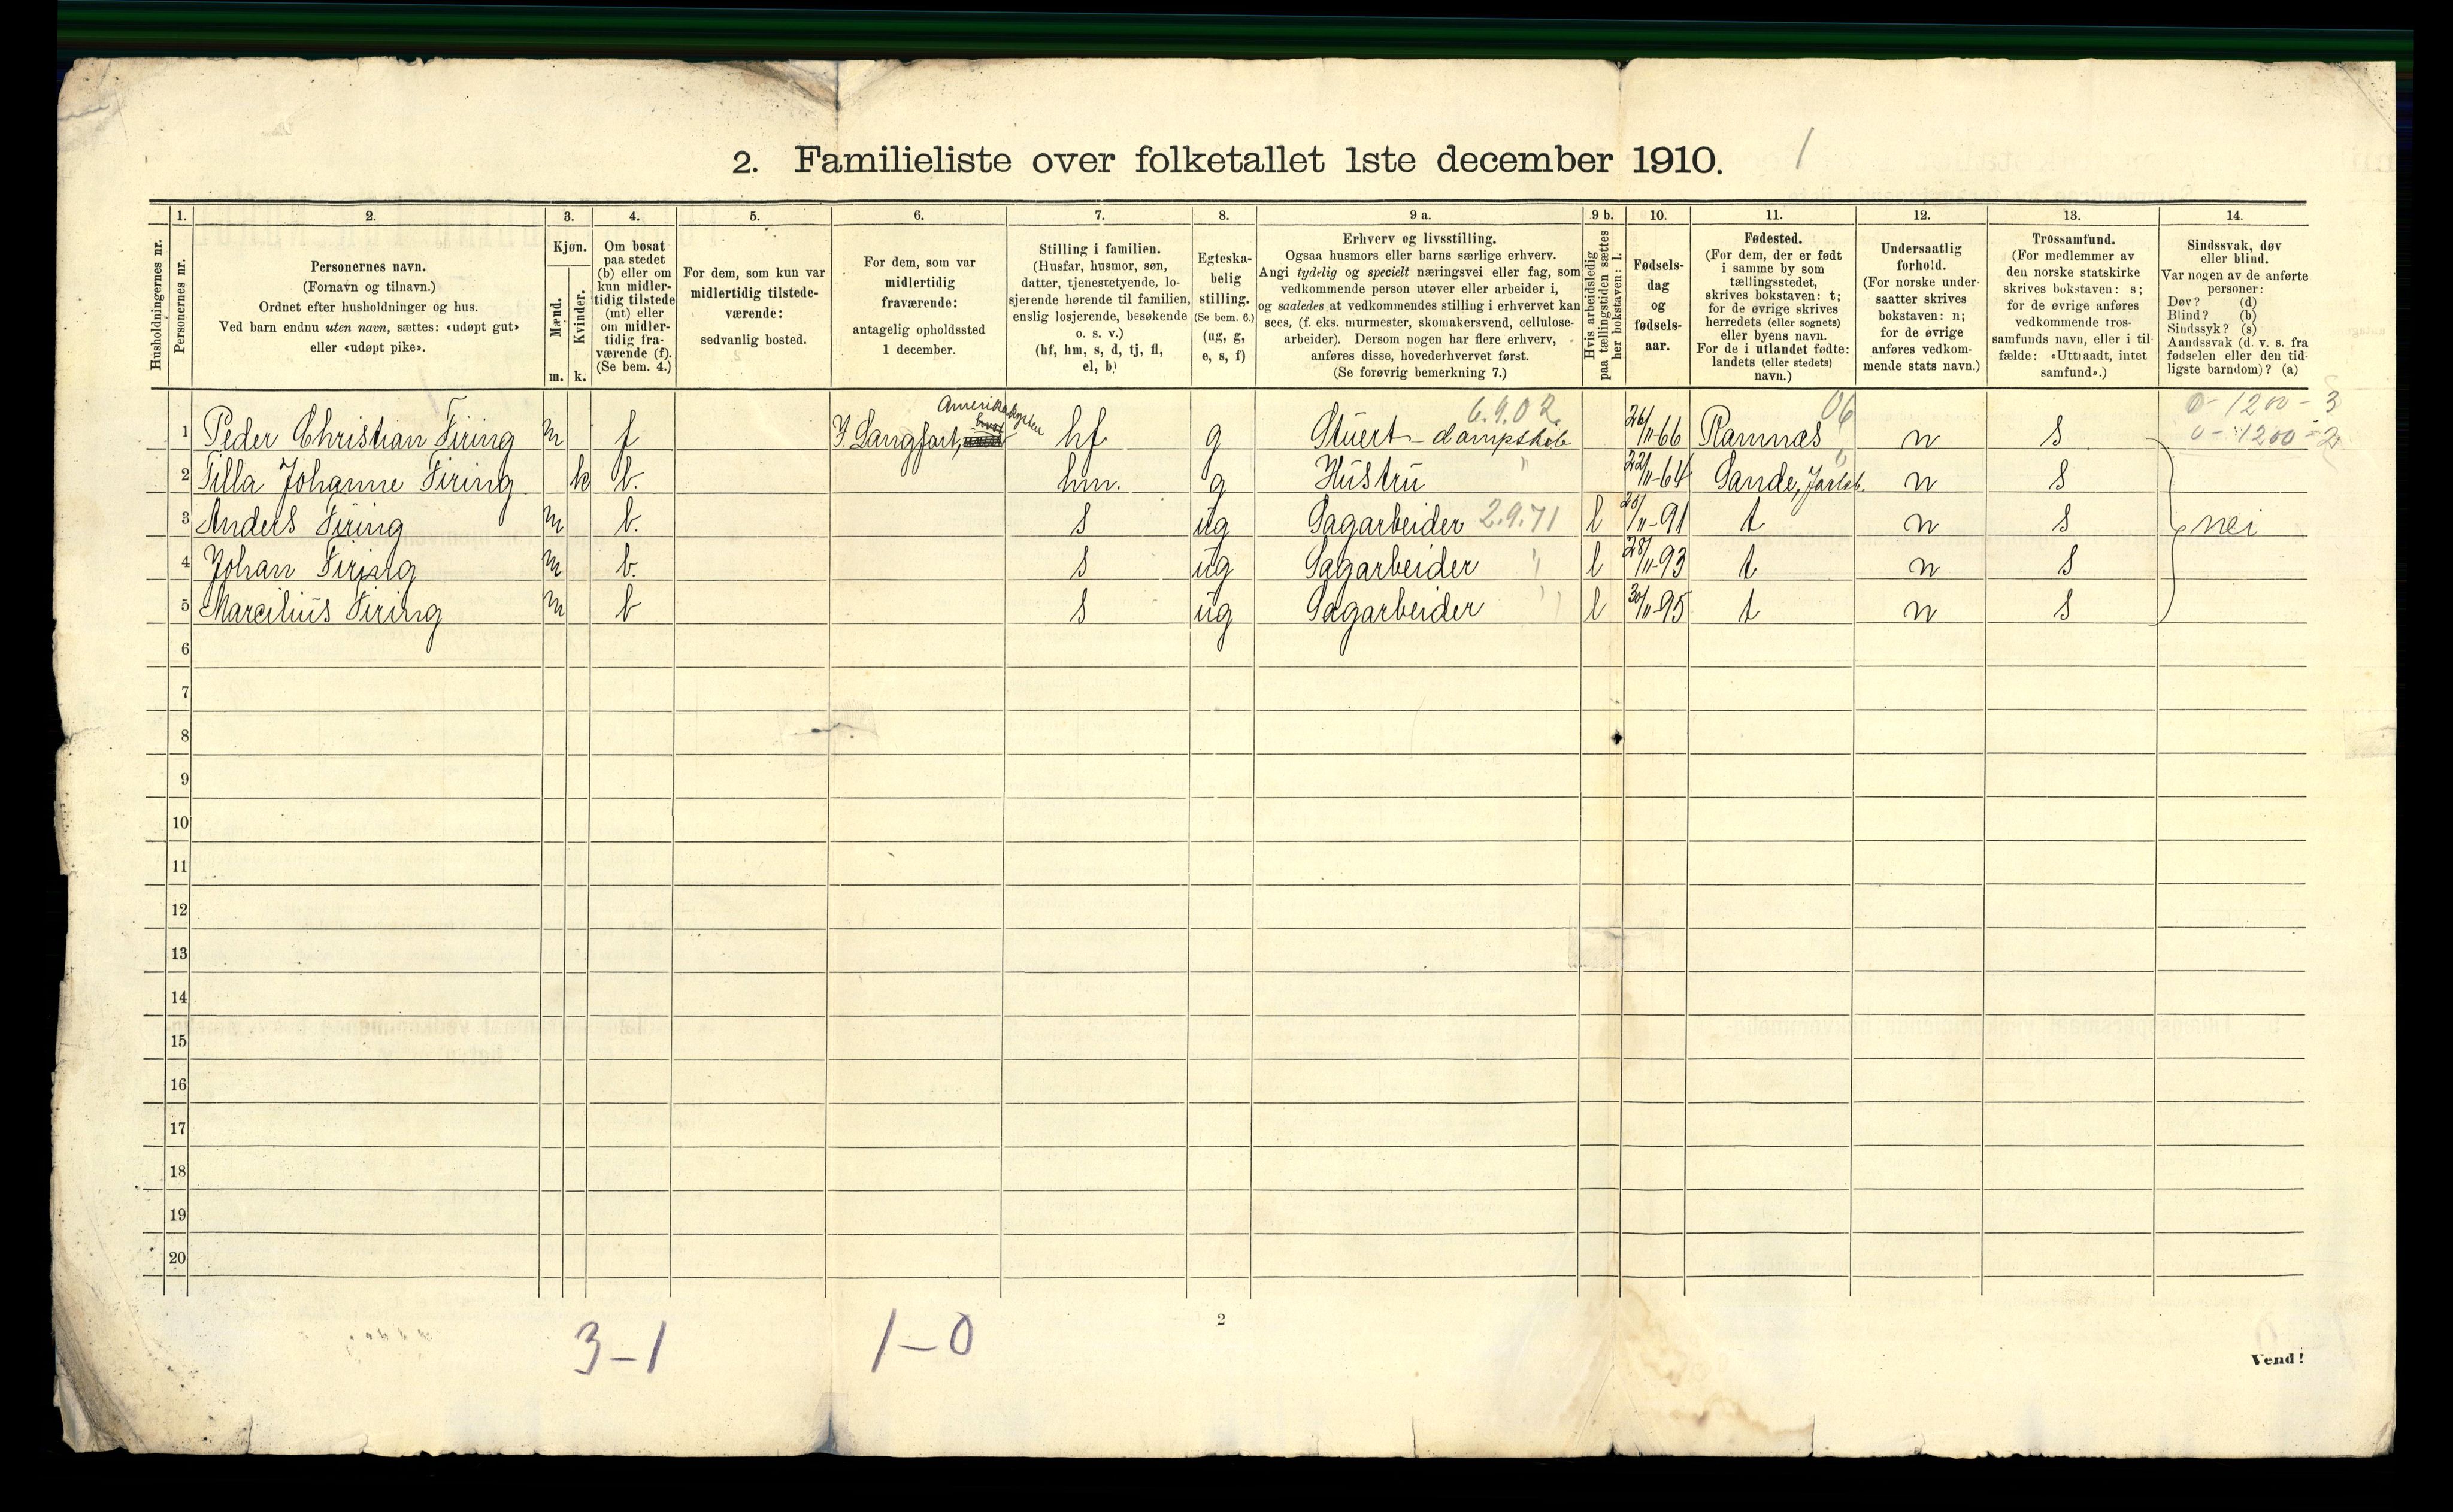 1
2. Familieliste over folketallet 1ste december 1910.
Husholdningernes nr.
1.
Personernes nr.
2.
Personernes navn.
(Fornavn og tilnavn.)
Ordnet efter husholdninger og hus.
Ved barn endnu uten navn, sættes: «udøpt gut»
eller «udøpt pike».
3.
Kjøn.
Mænd.
Kvinder.
m. k.
4.
Om bosat
paa stedet
(b) eller om
kun midler-
tidig tilstede
(mt) eller
om midler-
tidig fra-
værende (f).
(Se bem. 4.)
5.
For dem, som kun var
midlertidig tilstede-
værende:
sedvanlig bosted.
6.
For dem, som var
midlertidig
fraværende:
antagelig opholdssted
1 december.
7.
Stilling i familien.
(Husfar, husmor, søn,
datter, tjenestetyende, lo-
sjerende hørende til familien,
enslig losjerende, besøkende
o. s. v.)
(hf, hm, s, d, tj, fl,
el, b)
8.
Egteska-
belig
stilling.
(Se bem. 6.)
(ug, g,
e, s, f)
9 a.
Erhverv og livsstilling.
Ogsaa husmors eller barns særlige erhverv.
Angi tydelig og specielt næringsvei eller fag, som
vedkommende person utøver eller arbeider i,
og saaledes at vedkommendes stilling i erhvervet kan
sees, (f. eks. murmester, skomakersvend, cellulose-
arbeider). Dersom nogen har flere erhverv,
anføres disse, hovederhvervet først.
(Se forøvrig bemerkning 7.)
9 b.
Hvis arbeidsledig
paa tællingstiden sættes
her bokstaven: l.
10.
Fødsels-
dag
og
fødsels-
aar.
11.
Fødested.
(For dem, der er født
i samme by som
tællingsstedet,
skrives bokstaven: t;
for de øvrige skrives
herredets (eller sognets)
eller byens navn.
For de i utlandet fødte:
landets (eller stedets)
navn.)
12.
Undersaatlig
forhold.
(For norske under-
saatter skrives
bokstaven: n;
for de øvrige
anføres vedkom-
mende stats navn.)
13.
Trossamfund.
(For medlemmer av
den norske statskirke
skrives bokstaven: s;
for de øvrige anføres
vedkommende tros-
samfunds navn, eller i til-
fælde: «Uttraadt, intet
samfund».)
14.
Sindssvak, døv
eller blind.
Var nogen av de anførte
personer:
Døv? (d)
Blind? (b)
Sindssyk? (s)
Aandssvak (d. v. s. fra
fødselen eller den tid-
ligste barndom)? (a)
Amerikakysten 6.9.02. 06 0-1200-3
1 Peder Christian Firing m f I. Langfart, hf g Stuert - dampskib 26/11-66 Ramnæs n s 0-1200-2
2 Tilla Johanne Firing k b. hm. g Hustru " 22/11-64 Sande, Jarlsb. n s
3 Anders Firing m b. s ug Sagarbeider 2.9.71 l /11-91 t n s nei
4 Johan Firing m b. s ug Sagarbeider " l 28/11-93 t n s
5 Marcilius Firing m b s ug Sagarbeider " l 30/11-95 t n s
6
7
8
9
10
11
12
13
14
15
16
17
18
19
20
3-1 1-0
2
Vend!